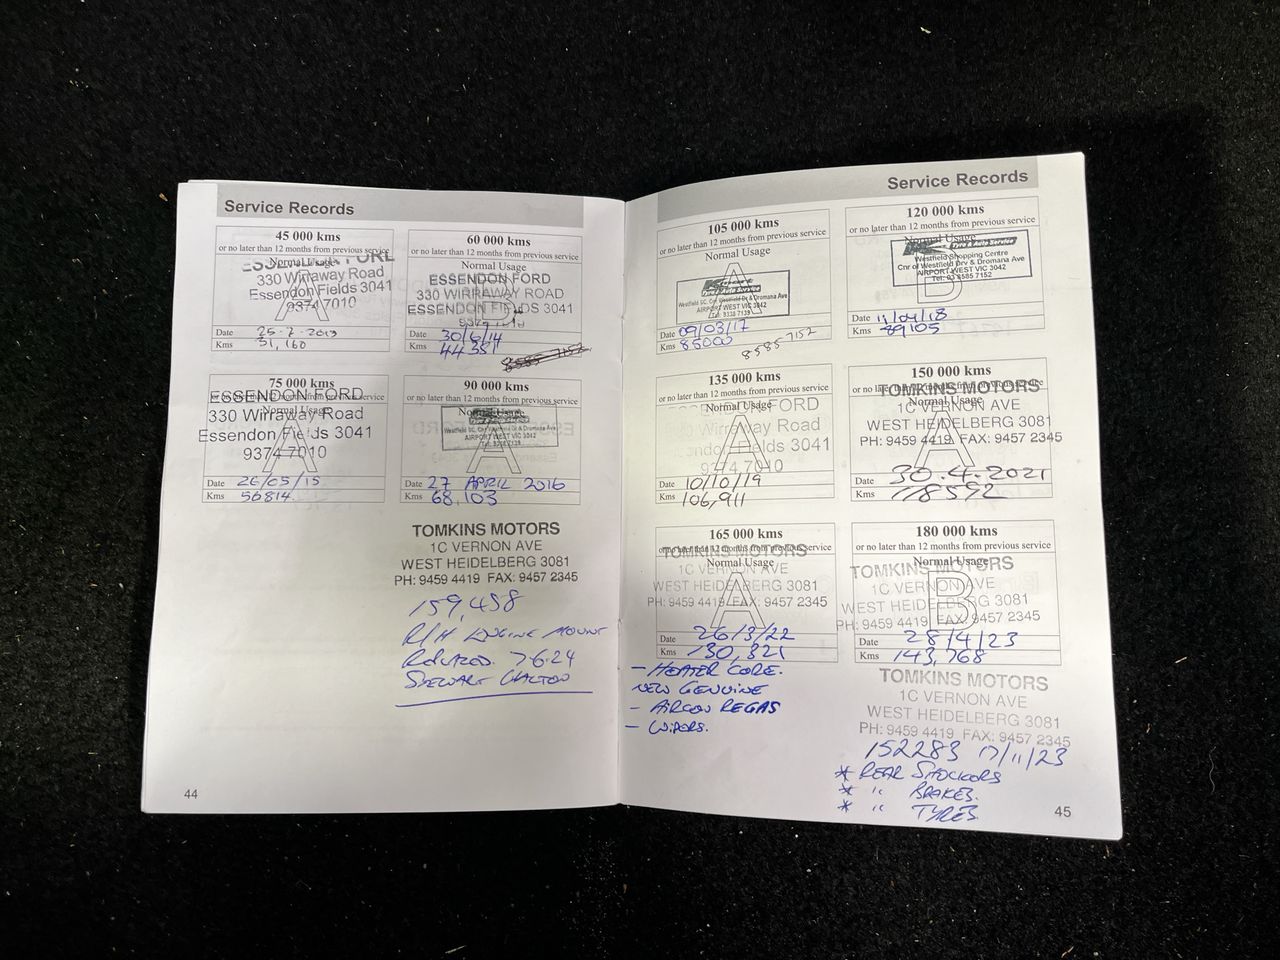 Service Records
45 000 kms
or no later than 12 months from previous service
Normal Usage
330 Wirraway Road
Essendon Fields 3041
9374 7010
A
Date 25-2-2013
Kms 31,160
60 000 kms
or no later than 12 months from previous service
Normal Usage
ESSENDON FORD
330 WIRRAWAY ROAD
ESSENDON FIELDS 3041
Date 30/6/14
Kms 44351
8585 7152
75 000 kms
or no later than 12 months from previous service
ESSENDON FORD
Normal Usage
330 Wirraway Road
Essendon Fields 3041
9374 7010
A
Date 26/05/15
Kms 56814
90 000 kms
or no later than 12 months from previous service
Normal Usage
Westfield SC. Cnr Westfield Dr & Dromana Ave
AIRPORT WEST VIC 3042
Tel: 9338 7139
A
Date 27 APRIL 2016
Kms 68,103
TOMKINS MOTORS
1C VERNON AVE
WEST HEIDELBERG 3081
PH: 9459 4419 FAX: 9457 2345
159,458
R/H ENGINE MOUNT
7-6-24
44
Service Records
105 000 kms
or no later than 12 months from previous service
Normal Usage
A
Tyre & Auto Service
Westfield SC. Cnr Westfield Dr & Dromana Ave
AIRPORT WEST VIC 3042
Tel: 9338 7139
Date 09/03/17
Kms 85000
8585 7152
120 000 kms
or no later than 12 months from previous service
Normal Usage
Tyre & Auto Service
Westfield Shopping Centre
Cnr of Westfield Drv & Dromana Ave
AIRPORT WEST VIC 3042
Tel: 03 8585 7152
B
Date 11/04/18
Kms 89105
135 000 kms
or no later than 12 months from previous service
Normal Usage
FORD
Wirraway Road
Fields 3041
9374 7010
A
Date 10/10/19
Kms 106,911
150 000 kms
or no later than 12 months from previous service
TOMKINS MOTORS
Normal Usage
1C VERNON AVE
WEST HEIDELBERG 3081
PH: 9459 4419 FAX: 9457 2345
A
Date 30.4.2021
Kms 118592
165 000 kms
or no later than 12 months from previous service
TOMKINS MOTORS
Normal Usage
1C VERNON AVE
WEST HEIDELBERG 3081
PH: 9459 4419 FAX: 9457 2345
A
Date 26/3/22
Kms 130,321
- HEATER CORE.
NEW GENUINE
- AIRCON REGAS
- WIPERS.
180 000 kms
or no later than 12 months from previous service
Normal Usage
TOMKINS MOTORS
1C VERNON AVE
WEST HEIDELBERG 3081
PH: 9459 4419 FAX: 9457 2345
B
Date 28/4/23
Kms 143,768
TOMKINS MOTORS
1C VERNON AVE
WEST HEIDELBERG 3081
PH: 9459 4419 FAX: 9457 2345
152283 17/11/23
* REAR SHOCKERS
* " BRAKES.
* " TYRES
45